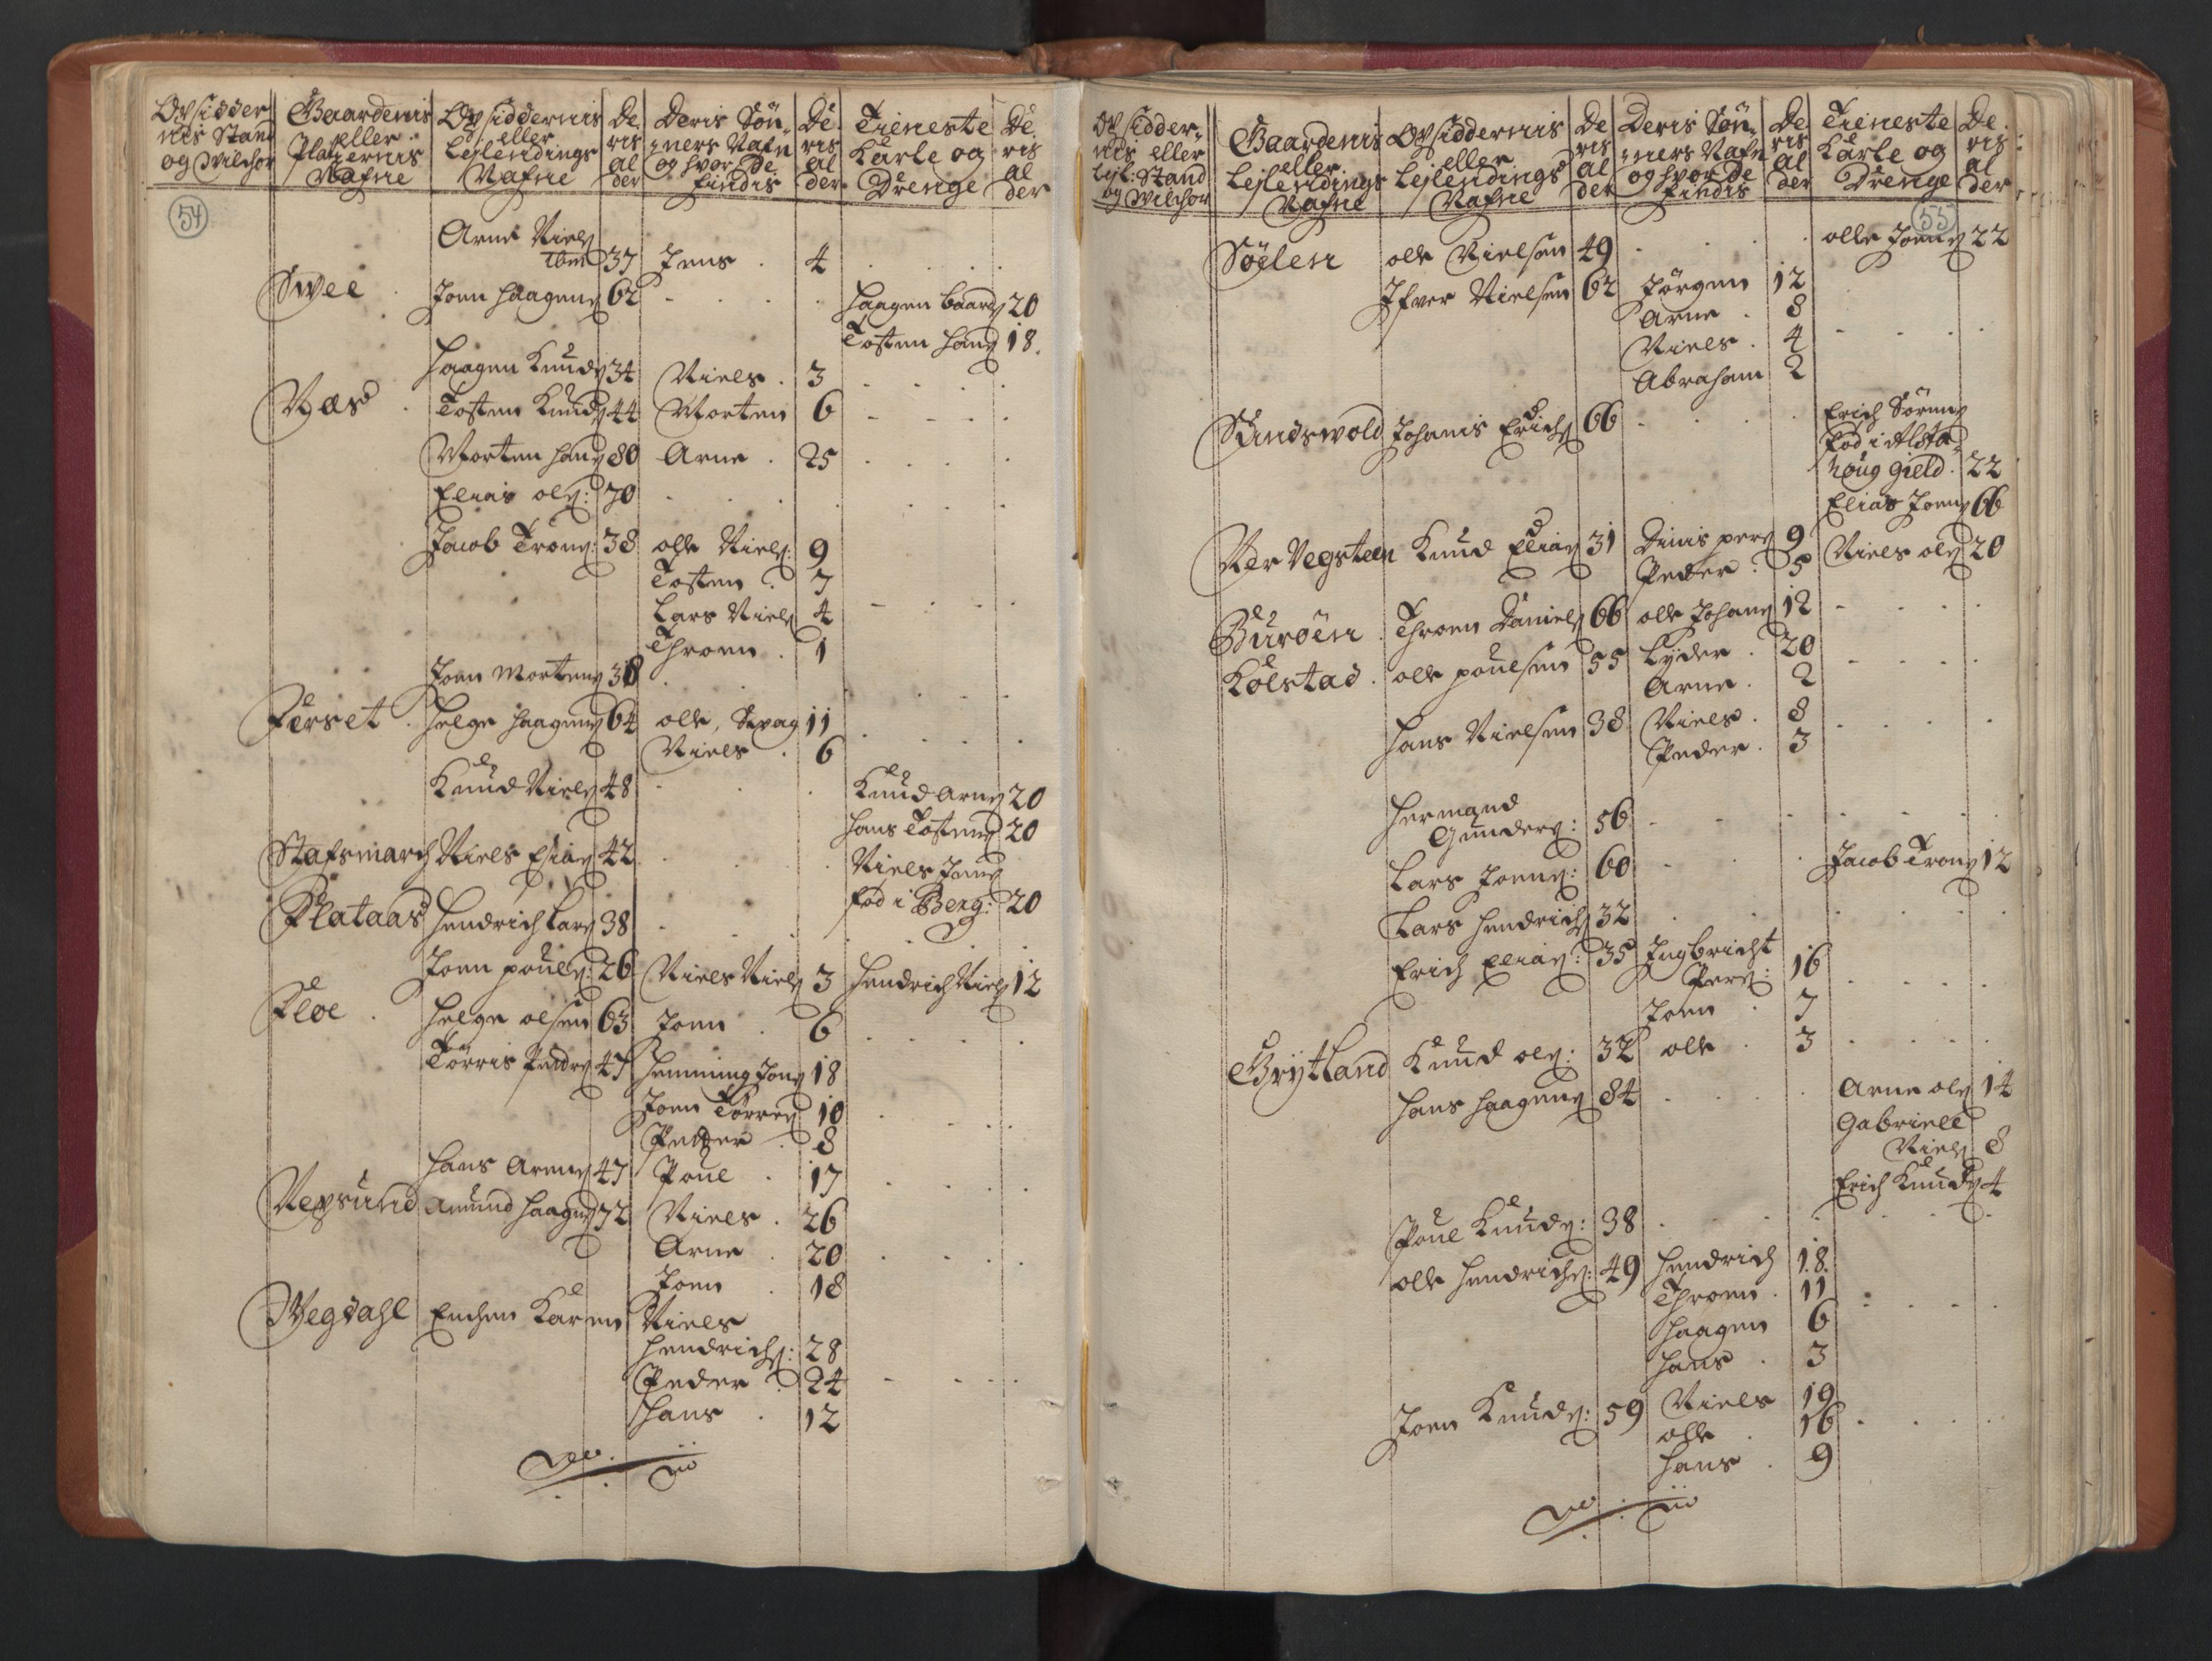 Opsidder nis Stand og Wilchor | Gaardenis eller Platzernis Nafne | Opsiddernis eller Lejlendings Nafne | De ris al der | Deris Søn- ners Nafn og hvor De findis | De ris al der | Tieneste Karle og Drenge | De ris al der
54
Arne Niels
ibm 37 Jens . 4
Swee . Joen Haagens 62 Haagen Baards 20
Tosten Hans 18.
Haagen Knuds 34 Niels . 3
Næs . Tosten Knuds 44 Morten 6
Morten Hans 80 Arne . 25
Elias Ols: 70
Jacob Trons: 38 Olle Niels: 9
Tosten . 7
Lars Niels 4
Throen . 1
Joen Mortens 38
Førset . Helge Haagens 64 Olle, Swag 11
Niels . 6
Knud Niels 48 Knud Arns 20
Hans Tostens 20
Stafsmarch Niels Elias 42 Niels Jens
Fød i Berg: 20
Plataas Hendrich Lars 38
Joen Pouls: 26 Niels Niels 3 Hendrich Niels 12
Floe . Helge Olsen 63 Joen . 6
Tørris Peders 47 Hemming Jons 18
Joen Tørres 10
Peder . 8
Hans Arens 47 Poul . 17
Nepsund Amund Haagens 72 Niels . 26
Arne . 20
Joen . 18
Wegdahl Enchen Karen Niels
Hendrichs: 28
Peder . 24
Hans . 12
Opsidder- nis eller Lejl: Stand og Wilchor | Gaardenis eller Lejlendings Nafne | Opsiddernis eller Lejlendings Nafne | De ris al der | Deris Søn- ners Nafn og hvor De findis | De ris al der | Tieneste Karle og Drenge | De ris al der
55
Søelen Olle Nielsen 49 Olle Joens 22
Ifver Nielsen 62 Jørgen 12
Arne . 8
Niels . 4
Abraham 2
Sundswold Johanis Erichs 66 Erich Sørens
Fød i Alsta-
houg Gield . 22
Elias Joens 66
Ner Vegsteen Knud Elias 31 Dinis Pers 9 Niels Ols 20
Peder . 5
Burøen . Throen Daniels 66 Olle Johans 12
Kolstad . Olle Poulsen 55 Lyder . 20
Arne . 2
Hans Nielsen 38 Niels . 8
Peder . 3
Hermand
Gunders: 56
Lars Joens: 60 Jacob Trons 12
Lars Hendrichs 32
Erich Elias: 35 Ingbricht
Pers: 16
Joen . 7
Grytland Knud Ols: 32 Olle . 3
Hans Haagens 84 Arne Ols 14
Gabriell
Niels 8
Erich Knuds 4
Poul Knuds: 38
Olle Hendrichs: 49 Hendrich 18.
Throen . 11
Haagen 6
Hans . 3
Joen Knuds: 59 Niels 19
Olle . 16
Hans . 9